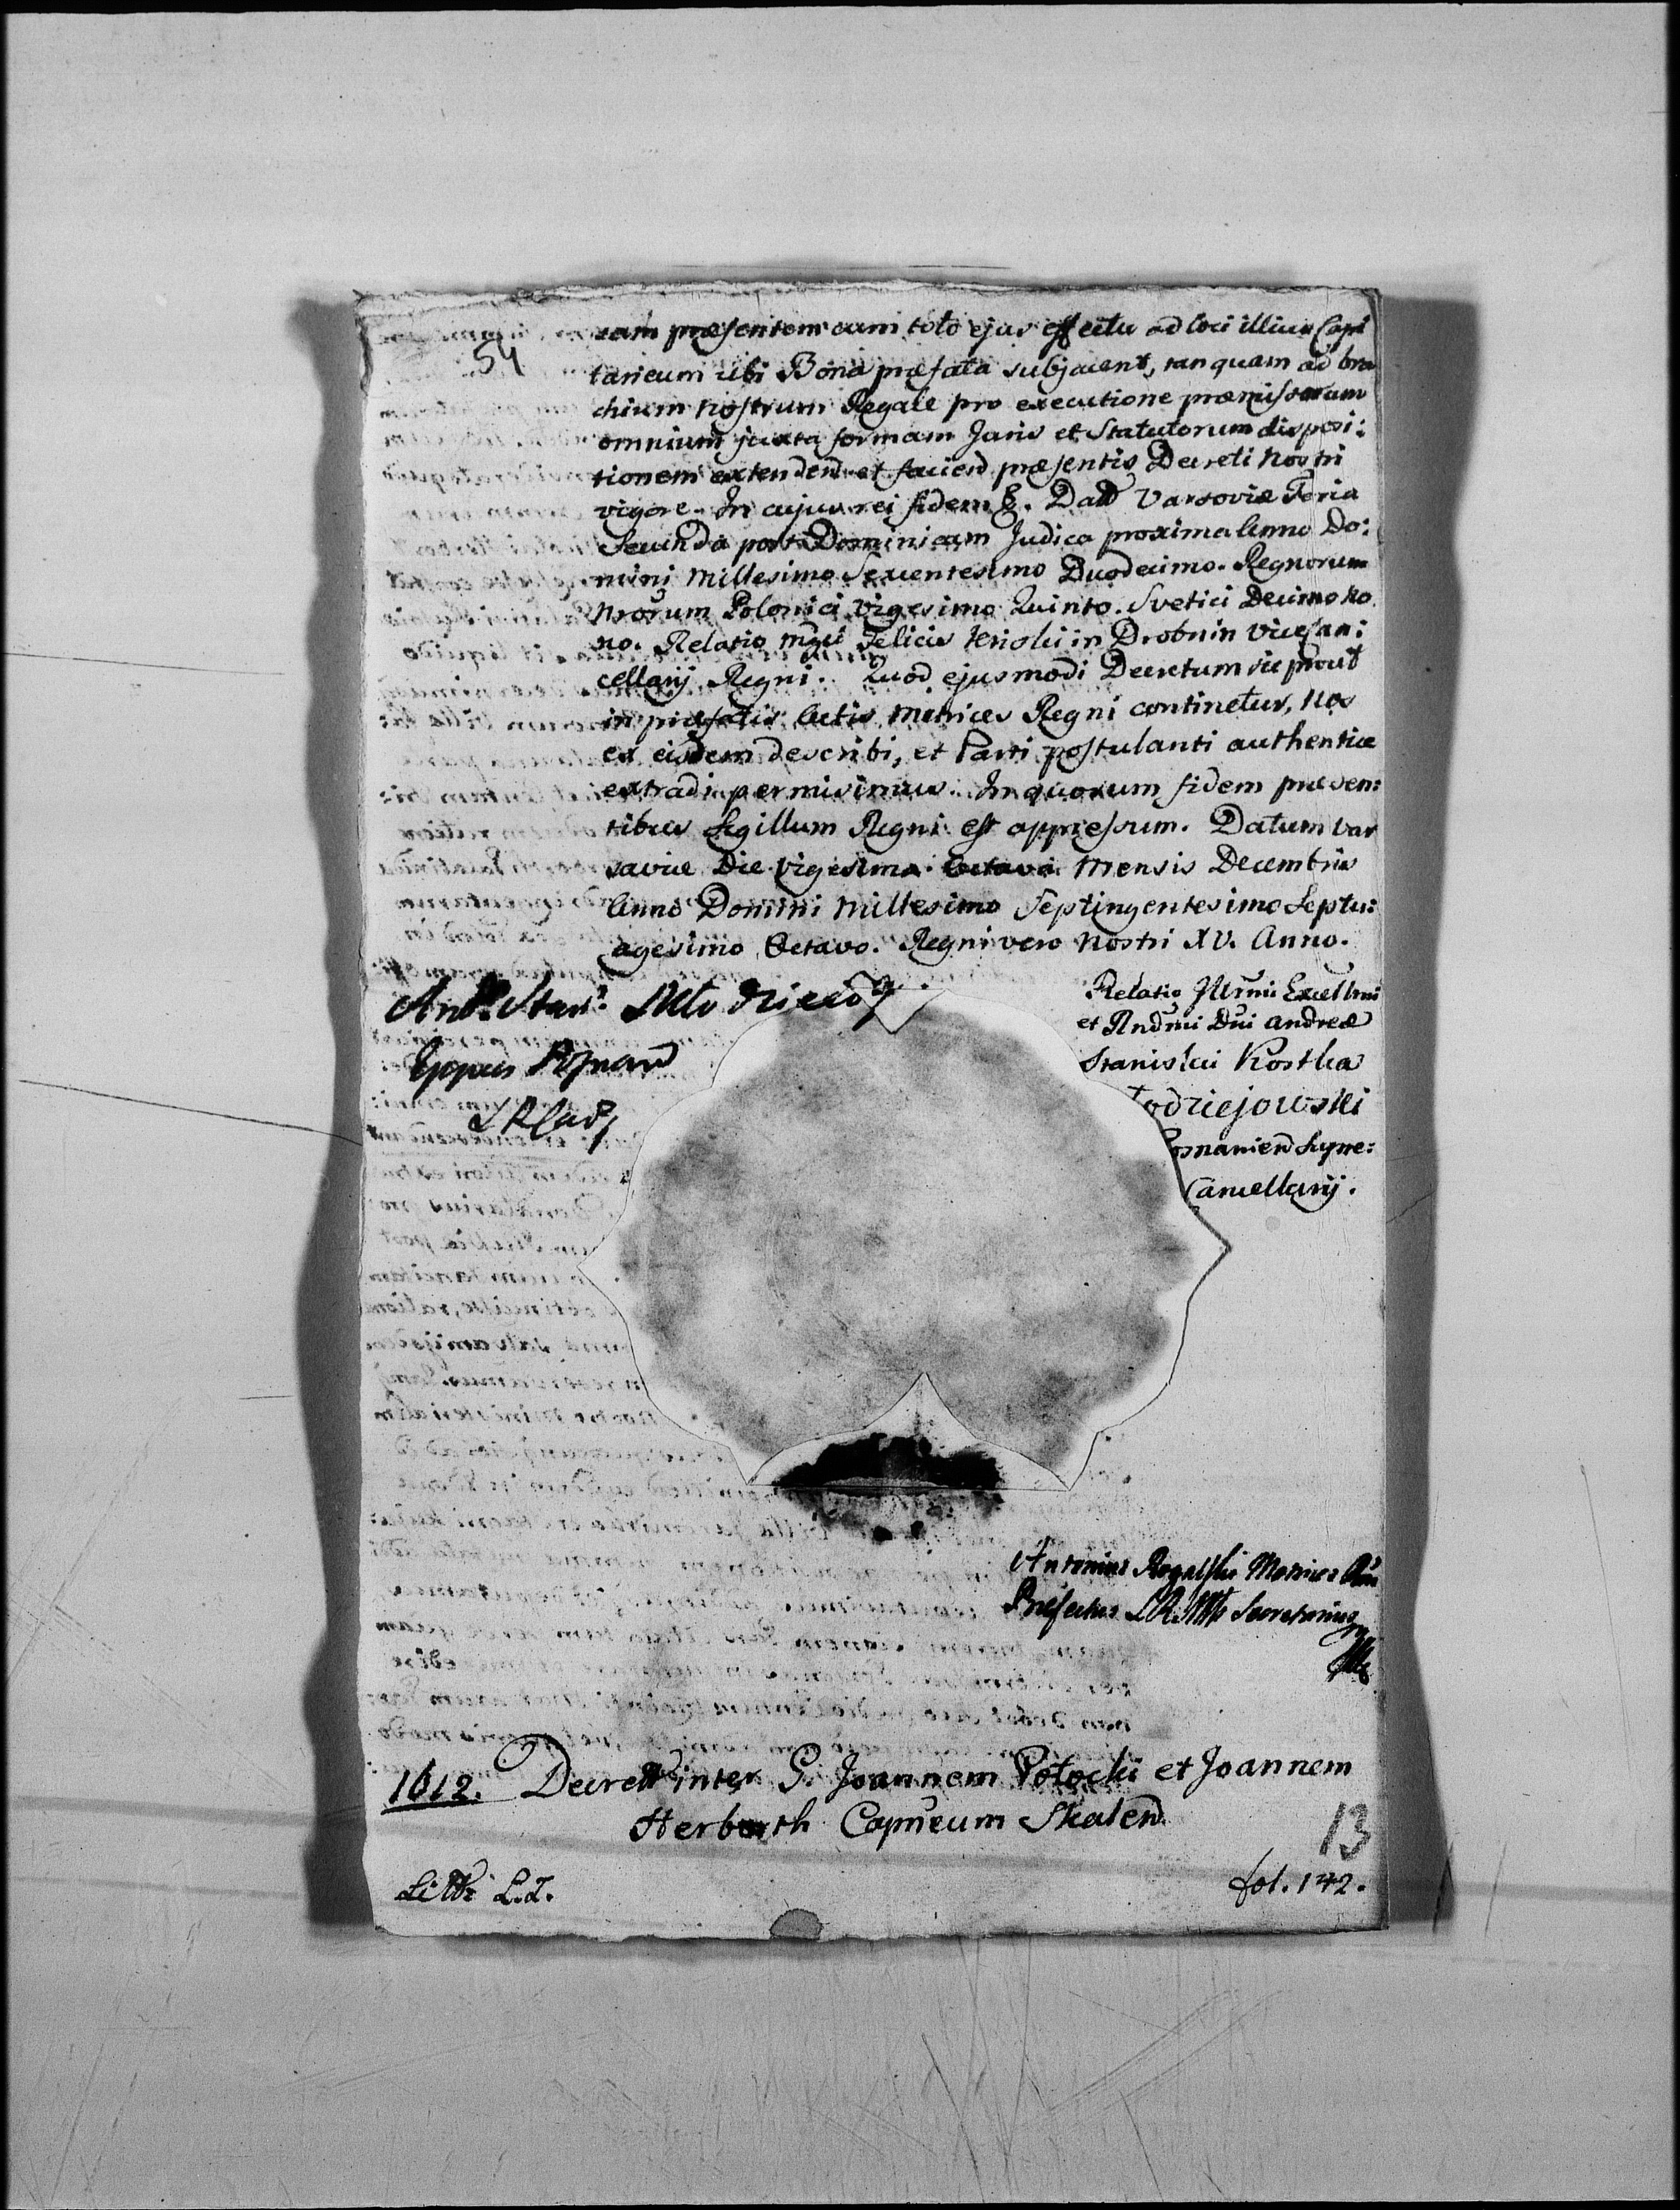 54
ram præsentem cum toto ejus effectu ad loci illius Capi
taneum ubi Bona præfata subjacent, tanquam ad bra
chium Nostrum Regale pro executione præmissorum
omnium juxta formam Juris et Statutorum disposi:
tionem extendend et faciend præsentis Decreti Nostri
vigore. In cujus rei fidem &. Datt Varsoviæ Feria
Secunda post Dominicam Judica proxima Anno Do:
mini Millesimo Sexcentesimo Duodecimo. Regnorum
Nrorum Polonici Vigesimo Quinto. Svetici Decimo No
no. Relatio Mgci Felicis Kriski in Drobnin Vicecan:
cellarij Regni. Quod ejusmodi Decretum sic prout
in præfatis Actis Metrices Regni continetur, Nos
ex eisdem describi, et Parti postulanti authentice
extradi permisimus. In quorum fidem præsen:
tibus Sigillum Regni est appressum. Datum Var
saviæ Die Vigesima Octava Mensis Decembris
Anno Domini Millesimo Septingentesimo Septu:
agesimo Octavo. Regni vero Nostri XV. Anno.
And. Stan. Młodziejow
Eppus Posnan
S R Canc
Relatio Illrmi Excellmi
et Rndmi Dni Andreæ
Stanislai Kostka
łodziejowski
osnanien Supre:
Cancellarij.
Antonius Rogalski Metrices Rni
Præfectus S.R.Mtis Secretarius
mp
1612. Decrett inter G. Joannem Potocki et Joannem
Herburth Capneum Skalen
13
Littr L.T.
fol. 142.